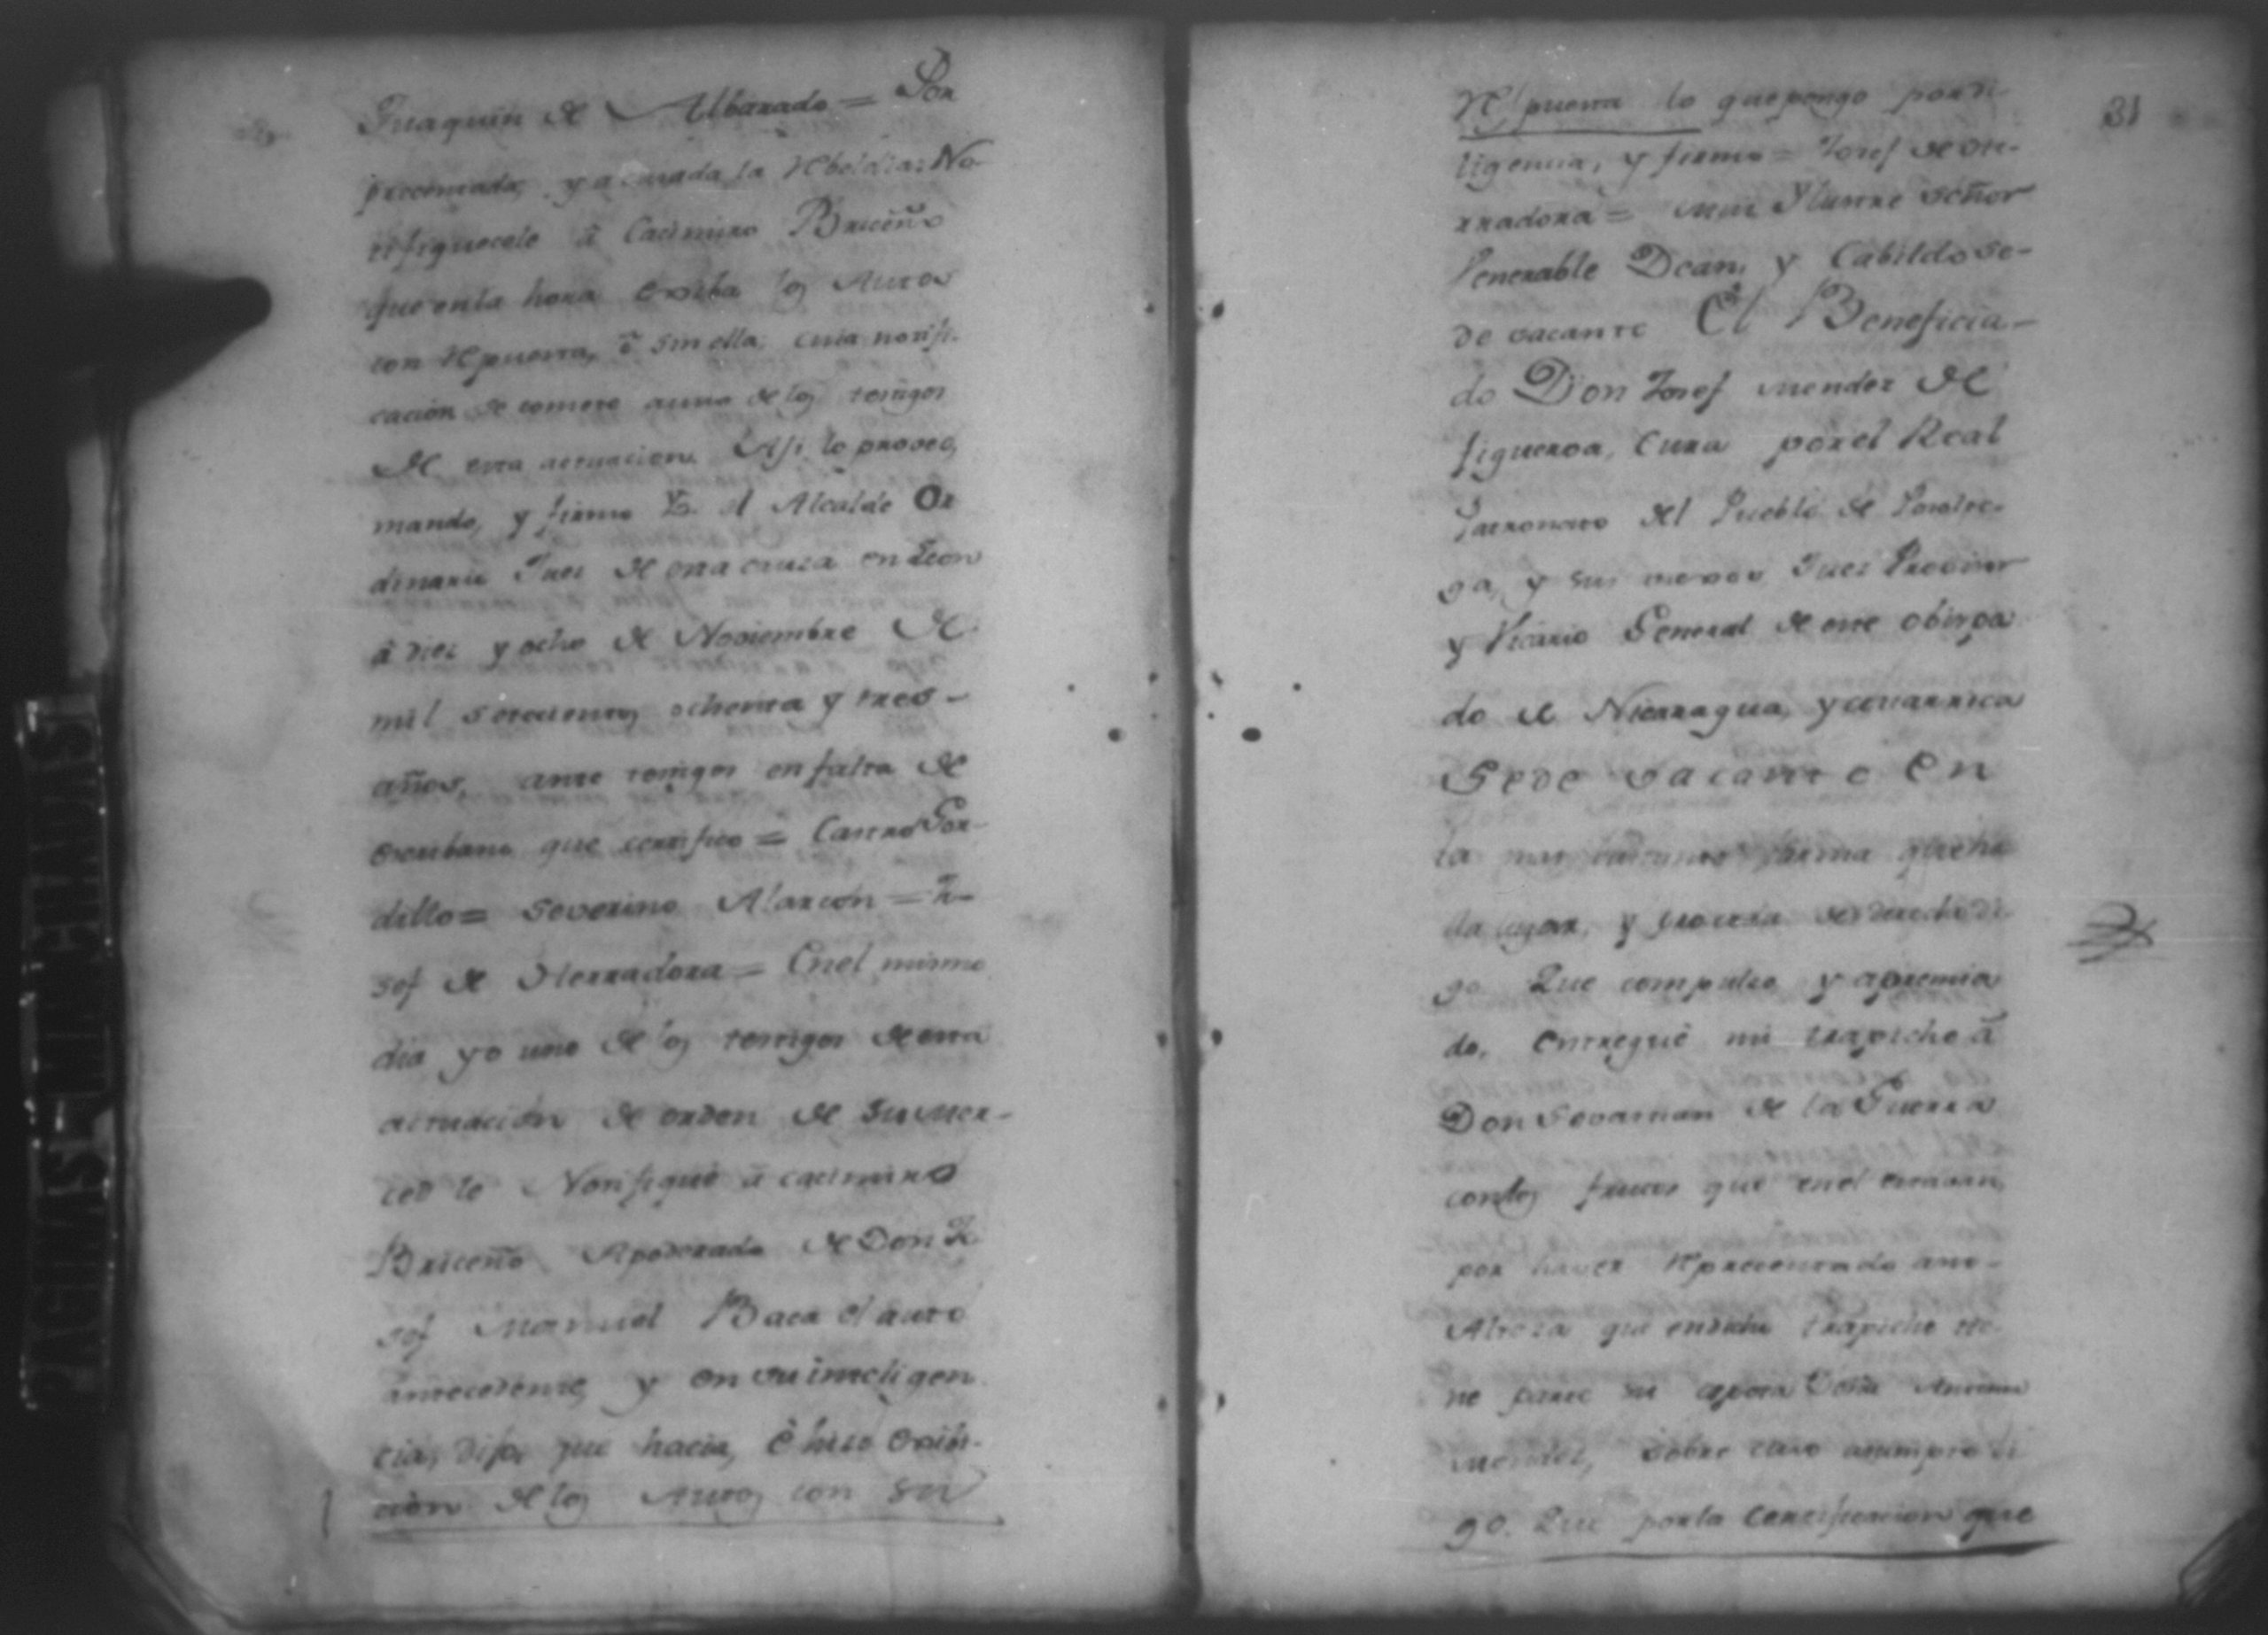 Juaquin de Albarado = Por
precentada, y acusada la Rebeldia: No-
tifiquecele â Cacimiro Briceño
que enla hora exciba los Autos
con Rspuesta, ô sin ella, cuia notifi-
cacion se comete auno delos testigos
de esta actuacion. Asi lo proveo,
mando, y firmo Yo el Alcalde Or
dinario Juez de esta causa en Leon
â diez y ocho de Noviembre de
mil setecientos ochenta y tres -
años, ante testigos en falta de
Escribano que certifico = Castro Gor-
dillo = Severino Alarcon = Jo-
sef de Herradora = Enel mismo
dia yo uno de los testigos de esta
actuacion de orden de su mer-
ced le Notifiquê â cacimiro
Briceño Apoderado de Don Jo
sef Manuel Baca el auto
antecedente, y en su inteligen
cia, dijo, que hacia, ê hiso Exibi-
cion de los Autos con su
Rspuesta lo que pongo por di-
ligencia, y firmo = Josef de He-
rradora = Mui Ylustre Señor
Venerable Dean, y Cabildo Se-
de vacante El Beneficia-
do Don Josef Mendez de
figueroa, Cura por el Real
Patronato del Pueblo de
ga, y su Juez Provisor
y Vicario General de este obispa
do de Nicaragua, y costarrica
Sede vacante En
la mas forma que ha
ia lugar, y de derecho di-
go Que compulso y apremia
do, entreguê mi trapiche â
Don Sevastian de la Guerra
conlos frutos que enel estavan,
por haver Rprecentado ante
Alteza que en dicho trapiche tie-
ne parte su esposa Doña Antonia
Mendez, sobre cuio asumpto di
go. Que por la Certificacion que
31